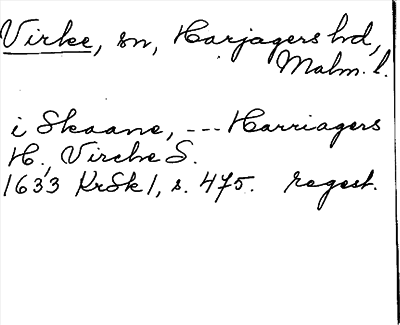 Virke, sn, Harjagers hd,
Malm. l.
i Skaane, --- Harriagers
H., Virche S.
1633 KrSk 1, s. 475. regest.